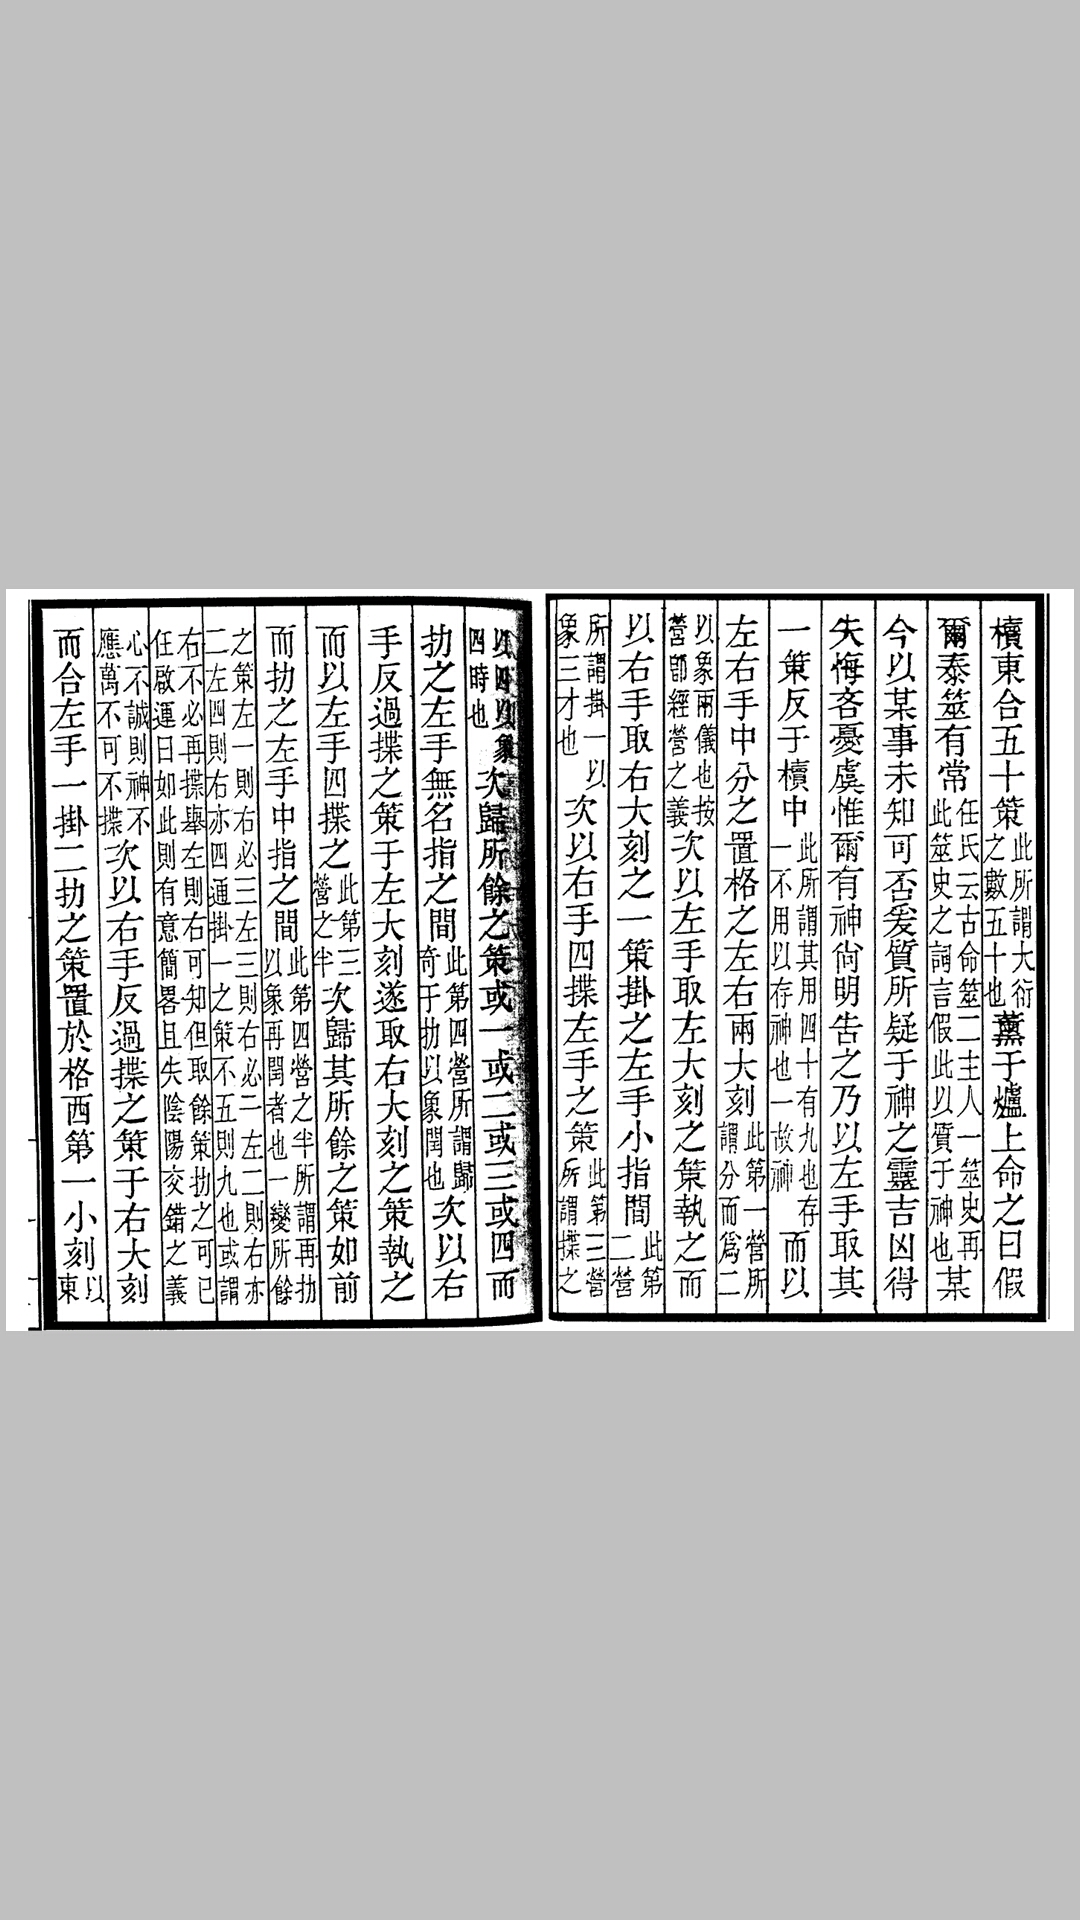 櫝東合五十策此所謂大衍之數五十也薰于爐上命之曰假
爾泰筮有常任氏云古命筮二主人一筮史再此筮史之詞言假此以質于神也某
今以某事未知可否爰質所疑于神之靈吉凶得
失悔吝憂虞惟爾有神尙明告之乃以左手取其
一策反于櫝中此所謂其用四十有九也存一不用以存神也一故神而以
左右手中分之置格之左右兩大刻此第一營所謂分而爲二
以象兩儀也按營卽經營之義次以左手取左大刻之策執之而
以右手取右大刻之一策掛之左手小指間此第二營
所謂掛一以象三才也次以右手四揲左手之策此第三營所謂揲之
以四以象四時也次歸所餘之策或一或二或三或四而
扐之左手無名指之間此第四營所謂歸奇于扐以象閏也次以右
手反過揲之策于左大刻遂取右大刻之策執之
而以左手四揲之此第三營之半次歸其所餘之策如前
而扐之左手中指之間此第四營之半所謂再扐以象再閏者也一變所餘
之策左一則右必三左三則右必二左二則右亦二左四則右亦四通掛一之策不五則九也或謂
右不必再揲舉左則右可知但取餘策扐之可已任啟運曰如此則有意簡畧且失陰陽交錯之義
心不誠則神不應萬不可不揲次以右手反過揲之策于右大刻
而合左手一掛二扐之策置於格西第一小刻以東